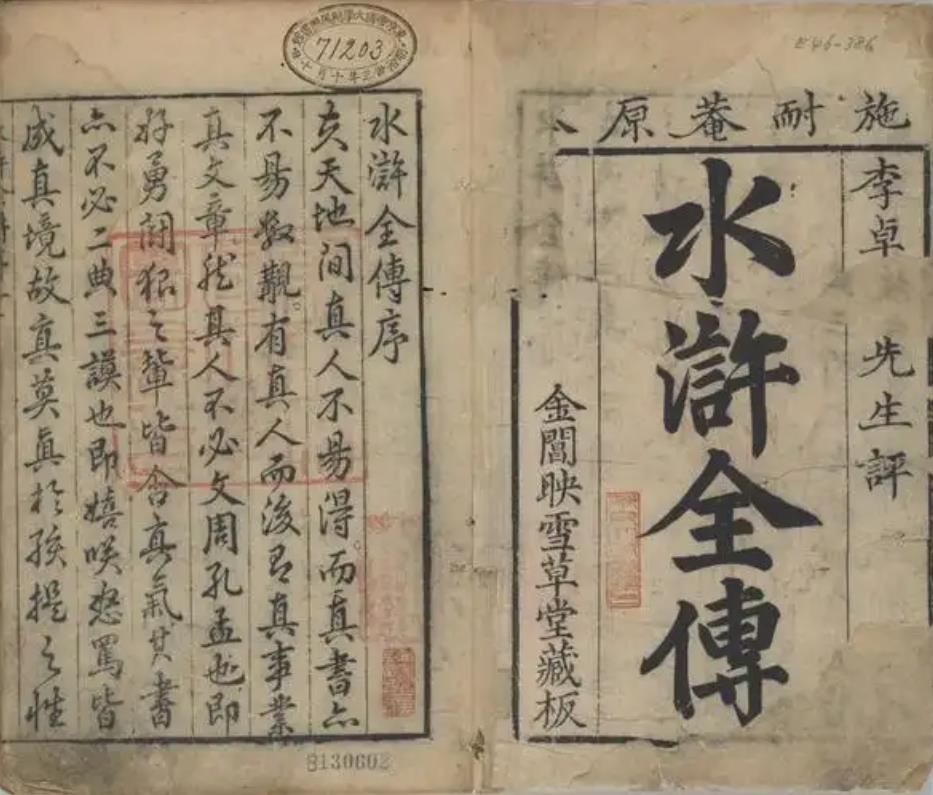 施耐菴原
李卓 先生評
水滸全傳
金閶映雪草堂藏板
水滸全傳序
夫天地間真人不易得。而真書亦
不易數覯。有真人而後有真事業
真文章然其人不必文周孔孟也即
好勇鬬狠之輩皆含真氣其書
亦不必二典三謨也即嬉咲怒罵皆
成真境故真莫真於孩提之性
71203
E46-386
8130602